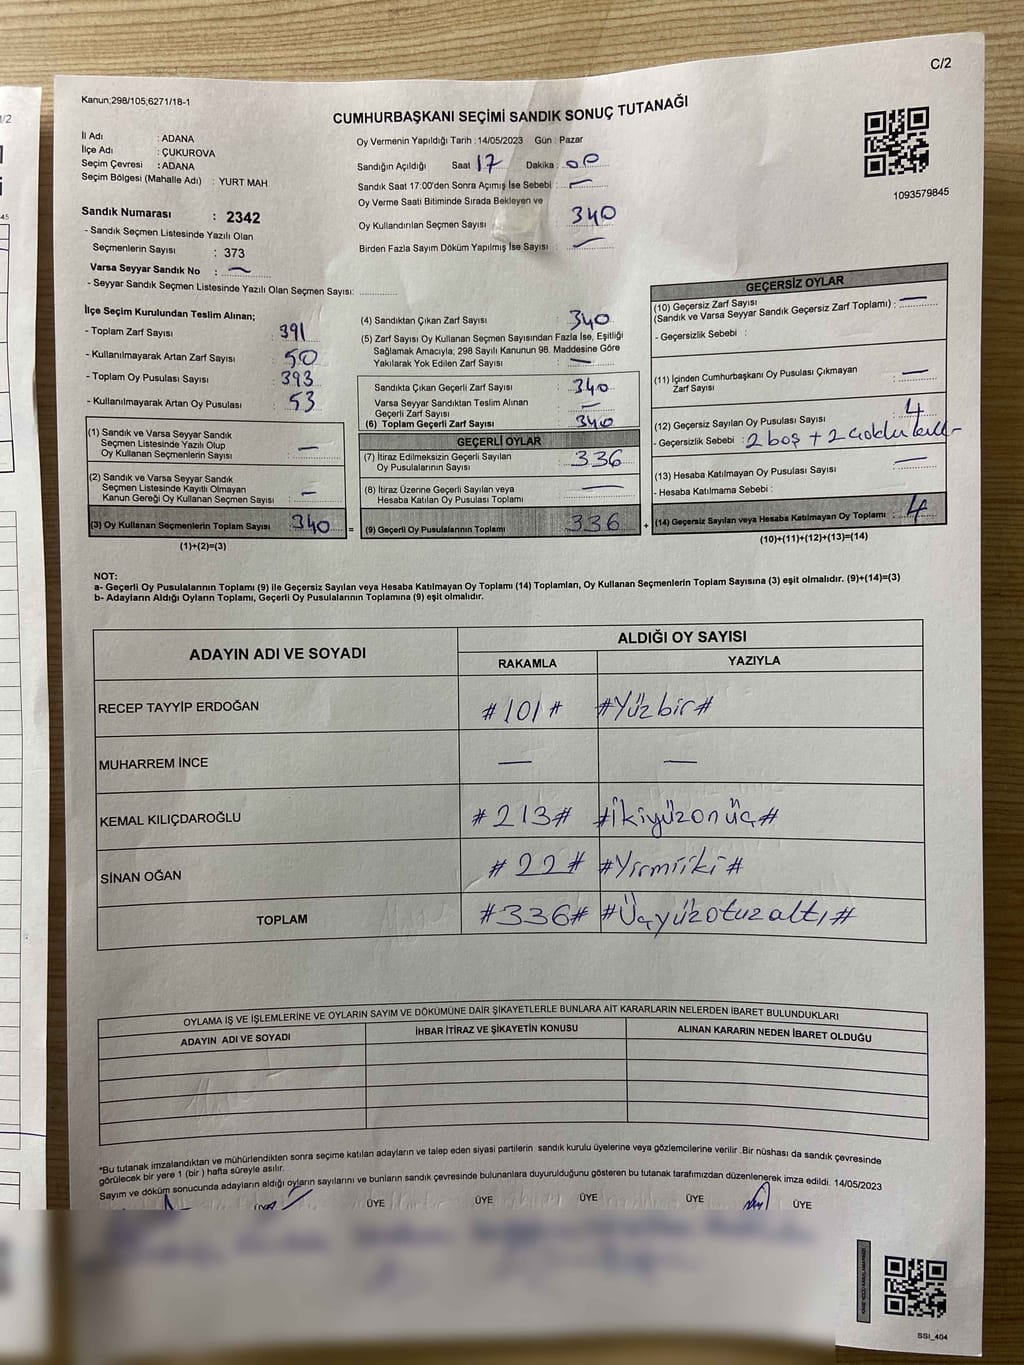 C/2
Kanun;298/105;6271/18-1
CUMHURBAŞKANI SEÇİMİ SANDIK SONUÇ TUTANAĞI
İl Adı : ADANA
İlçe Adı : ÇUKUROVA
Seçim Çevresi : ADANA
Seçim Bölgesi (Mahalle Adı) : YURT MAH
Sandık Numarası : 2342
- Sandık Seçmen Listesinde Yazılı Olan
Seçmenlerin Sayısı : 373
Varsa Seyyar Sandık No : —
- Seyyar Sandık Seçmen Listesinde Yazılı Olan Seçmen Sayısı:
Oy Vermenin Yapıldığı Tarih : 14/05/2023 Gün : Pazar
Sandığın Açıldığı Saat 17 Dakika : 00
Sandık Saat 17:00'den Sonra Açımış İse Sebebi : —
Oy Verme Saati Bitiminde Sırada Bekleyen ve
Oy Kullandırılan Seçmen Sayısı : 340
Birden Fazla Sayım Döküm Yapılmış İse Sayısı : —
1093579845
İlçe Seçim Kurulundan Teslim Alınan;
- Toplam Zarf Sayısı : 391
- Kullanılmayarak Artan Zarf Sayısı : 50
- Toplam Oy Pusulası Sayısı : 393
- Kullanılmayarak Artan Oy Pusulası : 53
(1) Sandık ve Varsa Seyyar Sandık
Seçmen Listesinde Yazılı Olup
Oy Kullanan Seçmenlerin Sayısı : —
(2) Sandık ve Varsa Seyyar Sandık
Seçmen Listesinde Kayıtlı Olmayan
Kanun Gereği Oy Kullanan Seçmen Sayısı : —
(3) Oy Kullanan Seçmenlerin Toplam Sayısı 340 =
(1)+(2)=(3)
(4) Sandıktan Çıkan Zarf Sayısı : 340
(5) Zarf Sayısı Oy Kullanan Seçmen Sayısından Fazla İse, Eşitliği
Sağlamak Amacıyla; 298 Sayılı Kanunun 98. Maddesine Göre
Yakılarak Yok Edilen Zarf Sayısı : —
Sandıkta Çıkan Geçerli Zarf Sayısı : 340
Varsa Seyyar Sandıktan Teslim Alınan
Geçerli Zarf Sayısı : —
(6) Toplam Geçerli Zarf Sayısı : 340
GEÇERLİ OYLAR
(7) İtiraz Edilmeksizin Geçerli Sayılan
Oy Pusulalarının Sayısı : 336
(8) İtiraz Üzerine Geçerli Sayılan veya
Hesaba Katılan Oy Pusulası Toplamı : —
(9) Geçerli Oy Pusulalarının Toplamı 336 +
GEÇERSİZ OYLAR
(10) Geçersiz Zarf Sayısı
(Sandık ve Varsa Seyyar Sandık Geçersiz Zarf Toplamı) : —
- Geçersizlik Sebebi :
(11) İçinden Cumhurbaşkanı Oy Pusulası Çıkmayan
Zarf Sayısı : —
(12) Geçersiz Sayılan Oy Pusulası Sayısı : 4
- Geçersizlik Sebebi : 2 boş + 2
(13) Hesaba Katılmayan Oy Pusulası Sayısı : —
- Hesaba Katılmama Sebebi :
(14) Geçersiz Sayılan veya Hesaba Katılmayan Oy Toplamı : 4
(10)+(11)+(12)+(13)=(14)
NOT:
a- Geçerli Oy Pusulalarının Toplamı (9) ile Geçersiz Sayılan veya Hesaba Katılmayan Oy Toplamı (14) Toplamları, Oy Kullanan Seçmenlerin Toplam Sayısına (3) eşit olmalıdır. (9)+(14)=(3)
b- Adayların Aldığı Oyların Toplamı, Geçerli Oy Pusulalarının Toplamına (9) eşit olmalıdır.
ADAYIN ADI VE SOYADI ALDIĞI OY SAYISI
RAKAMLA YAZIYLA
RECEP TAYYİP ERDOĞAN #101# #Yüzbir#
MUHARREM İNCE — —
KEMAL KILIÇDAROĞLU #213# #İkiyüzonüç#
SİNAN OĞAN #22# #Yirmiiki#
TOPLAM #336# #Üçyüzotuzaltı#
OYLAMA İŞ VE İŞLEMLERİNE VE OYLARIN SAYIM VE DÖKÜMÜNE DAİR ŞİKAYETLERLE BUNLARA AİT KARARLARIN NELERDEN İBARET BULUNDUKLARI
ADAYIN ADI VE SOYADI İHBAR İTİRAZ VE ŞİKAYETİN KONUSU ALINAN KARARIN NEDEN İBARET OLDUĞU
*Bu tutanak imzalandıktan ve mühürlendikten sonra seçime katılan adayların ve talep eden siyasi partilerin sandık kurulu üyelerine veya gözlemcilerine verilir .Bir nüshası da sandık çevresinde
görülecek bir yere 1 (bir ) hafta süreyle asılır.
Sayım ve döküm sonucunda adayların aldığı oyların sayılarını ve bunların sandık çevresinde bulunanlara duyurulduğunu gösteren bu tutanak tarafımızdan düzenlenerek imza edildi. 14/05/2023
ÜYE ÜYE ÜYE ÜYE ÜYE
SSI_404